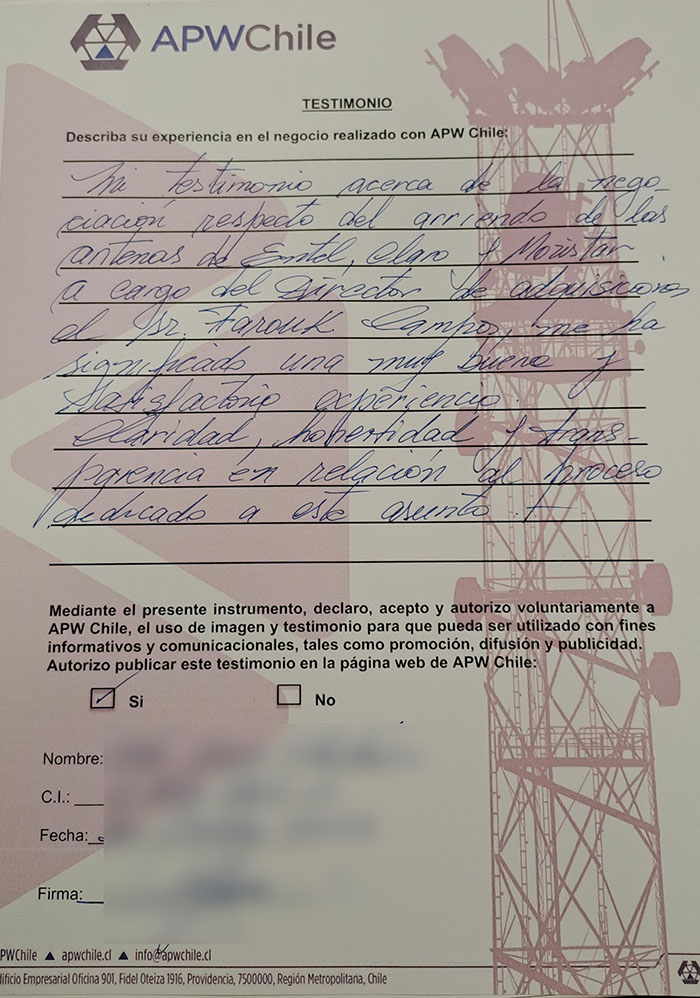 APWChile
TESTIMONIO
Describa su experiencia en el negocio realizado con APW Chile:
Mi testimonio acerca de la nego-
ciación respecto del arriendo de las
antenas de Entel, Claro y Movistar
a cargo del Director de adquisiciones
el Sr. Farouk Campos, me ha
significado una muy buena y
satisfactoria experiencia.
Claridad, honestidad y trans-
parencia en relación al proceso
dedicado a este asunto.
Mediante el presente instrumento, declaro, acepto y autorizo voluntariamente a
APW Chile, el uso de imagen y testimonio para que pueda ser utilizado con fines
informativos y comunicacionales, tales como promoción, difusión y publicidad.
Autorizo publicar este testimonio en la página web de APW Chile:
Si No
Nombre:
C.I.:
Fecha:
Firma:
PWChile ▲ apwchile.cl ▲ info@apwchile.cl
dificio Empresarial Oficina 901, Fidel Oteiza 1916, Providencia, 7500000, Región Metropolitana, Chile